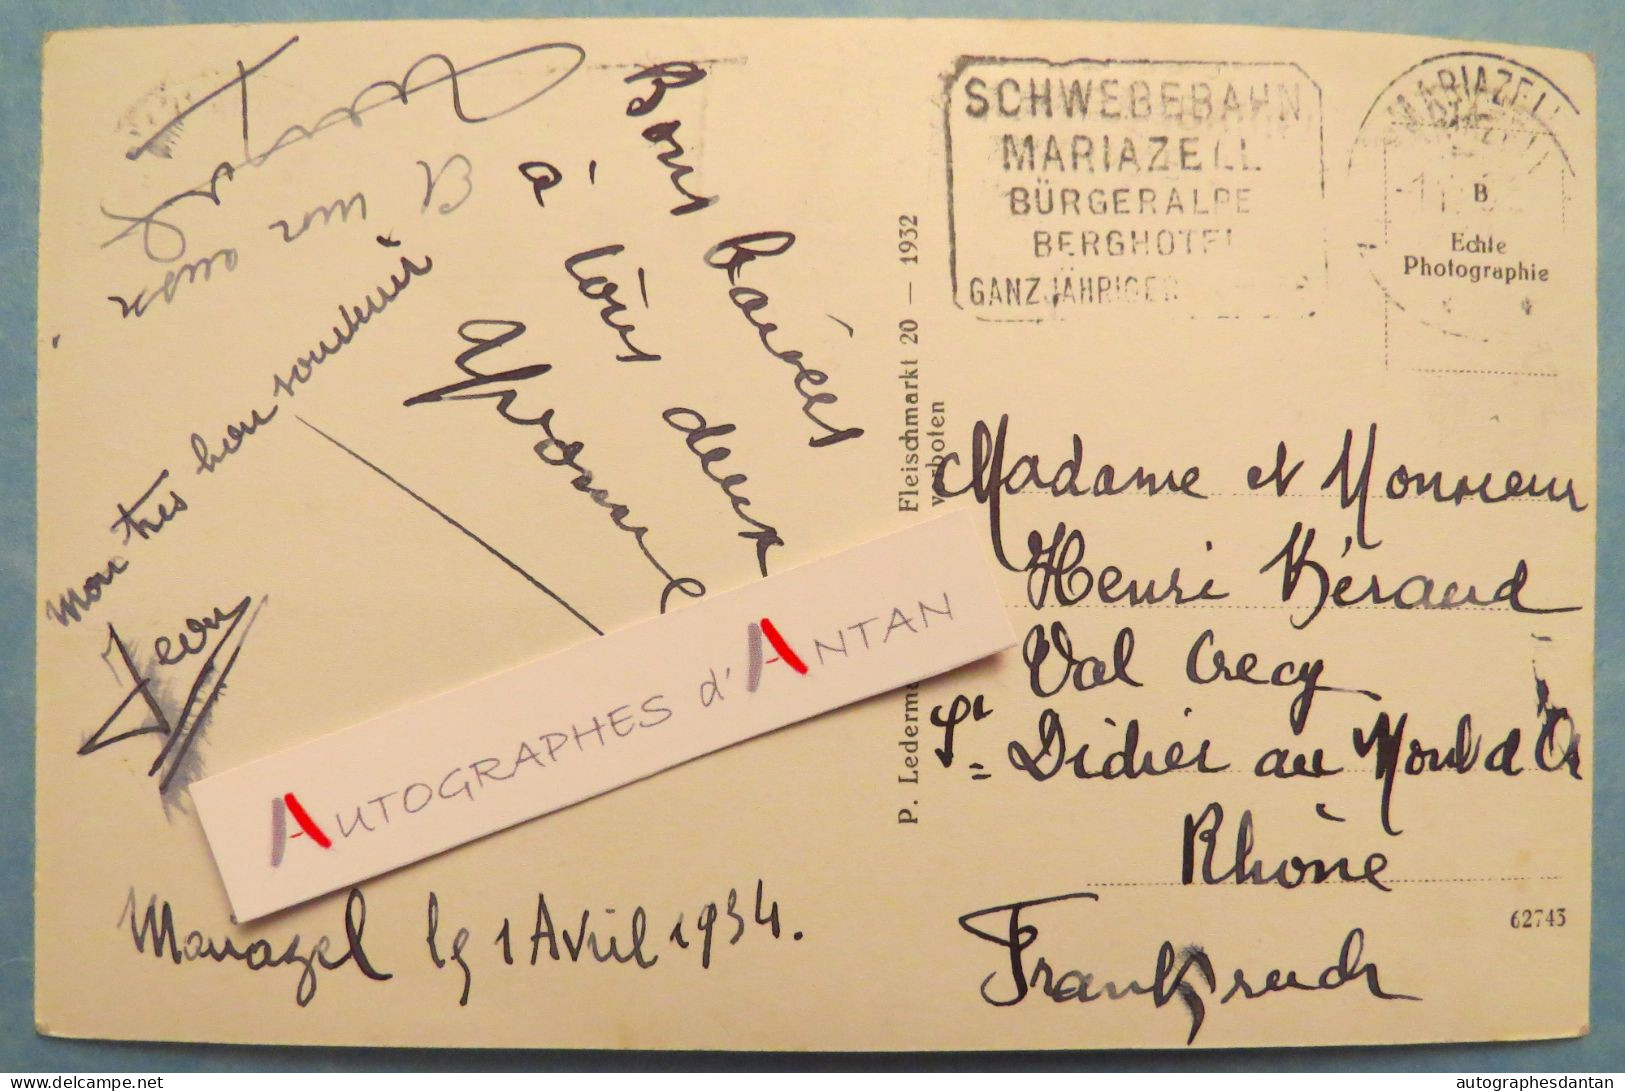 Bons baisers
à tous deux
Yvonne
Mon très bon souvenir
Jean
Mariazel le 1 Avril 1934.
AUTOGRAPHES d'ANTAN
P. Lederma Fleischmarkt 20 — 1932
verboten
SCHWEBEBAHN
MARIAZELL
BÜRGERALPE
BERGHOTEL
GANZJÄHRIGER
MARIAZELL
B
Echte
Photographie
Madame et Monsieur
Henri Béraud
Val Crecy
St Didier au Mont d'Or
Rhône
Frankreich
62743
autographesdantan